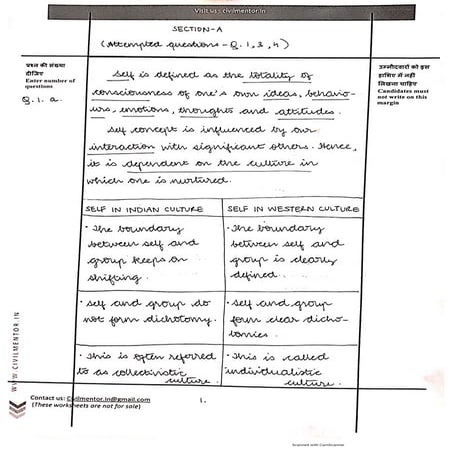 Visit us : civilmentor.in
SECTION-A
(Attempted questions - Q. 1, 3, 4)
प्रश्न की संख्या
दीजिए
Enter number of
questions
उम्मीदवारों को इस
हाशिए में नहीं
लिखना चाहिए
Candidates must
not write on this
margin
Q. 1. a.
Self is defined as the totality of
consciousness of one's own ideas, behavio-
urs, emotions, thoughts and attitudes.
Self concept is influenced by our
interaction with significant others. Hence,
it is dependent on the culture in
which one is nurtured.
SELF IN INDIAN CULTURE
SELF IN WESTERN CULTURE
• The boundary
between self and
group keeps on
shifting.
• The boundary
between self and
group is clearly
defined.
• Self and group do
not form dichotomy.
• Self and group
form clear dicho-
tomies.
• This is often referred
to as collectivistic
culture.
• This is called
individualistic
culture.
WWW.CIVILMENTOR.IN
Contact us: Civilmentor.in@gmail.com
(These worksheets are not for sale)
1.
Scanned with CamScanner